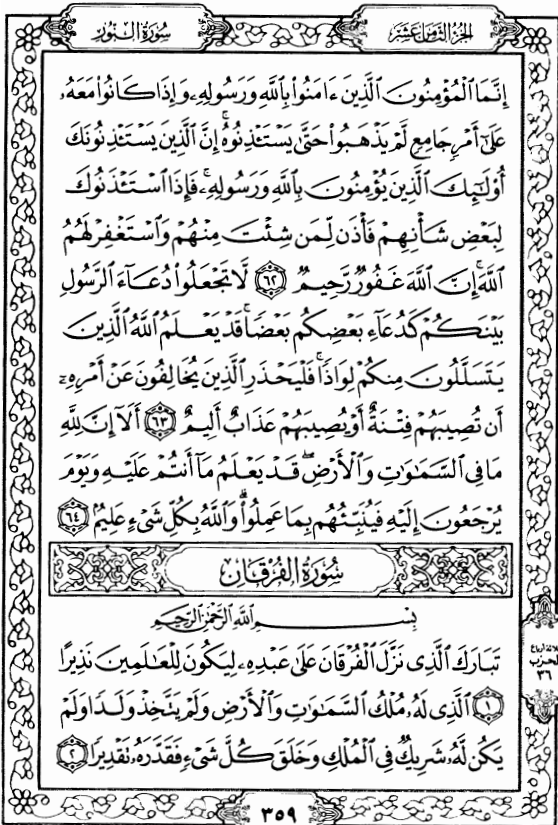 سُورَةُ النُّورِ
الجُزْءُ الثَّامِنَ عَشَرَ
إِنَّمَا ٱلْمُؤْمِنُونَ ٱلَّذِينَ ءَامَنُوا۟ بِٱللَّهِ وَرَسُولِهِۦ وَإِذَا كَانُوا۟ مَعَهُۥ
عَلَىٰٓ أَمْرٍ جَامِعٍ لَّمْ يَذْهَبُوا۟ حَتَّىٰ يَسْتَـْٔذِنُوهُ ۚ إِنَّ ٱلَّذِينَ يَسْتَـْٔذِنُونَكَ
أُو۟لَـٰٓئِكَ ٱلَّذِينَ يُؤْمِنُونَ بِٱللَّهِ وَرَسُولِهِۦ ۚ فَإِذَا ٱسْتَـْٔذَنُوكَ
لِبَعْضِ شَأْنِهِمْ فَأْذَن لِّمَن شِئْتَ مِنْهُمْ وَٱسْتَغْفِرْ لَهُمُ
ٱللَّهَ ۚ إِنَّ ٱللَّهَ غَفُورٌ رَّحِيمٌ ٦٢ لَّا تَجْعَلُوا۟ دُعَآءَ ٱلرَّسُولِ
بَيْنَكُمْ كَدُعَآءِ بَعْضِكُم بَعْضًا ۚ قَدْ يَعْلَمُ ٱللَّهُ ٱلَّذِينَ
يَتَسَلَّلُونَ مِنكُمْ لِوَاذًا ۚ فَلْيَحْذَرِ ٱلَّذِينَ يُخَالِفُونَ عَنْ أَمْرِهِۦٓ
أَن تُصِيبَهُمْ فِتْنَةٌ أَوْ يُصِيبَهُمْ عَذَابٌ أَلِيمٌ ٦٣ أَلَآ إِنَّ لِلَّهِ
مَا فِى ٱلسَّمَـٰوَٰتِ وَٱلْأَرْضِ ۖ قَدْ يَعْلَمُ مَآ أَنتُمْ عَلَيْهِ وَيَوْمَ
يُرْجَعُونَ إِلَيْهِ فَيُنَبِّئُهُم بِمَا عَمِلُوا۟ ۗ وَٱللَّهُ بِكُلِّ شَىْءٍ عَلِيمٌۢ ٦٤
سُورَةُ الفُرْقَانِ
بِسْمِ ٱللَّهِ ٱلرَّحْمَـٰنِ ٱلرَّحِيمِ
تَبَارَكَ ٱلَّذِى نَزَّلَ ٱلْفُرْقَانَ عَلَىٰ عَبْدِهِۦ لِيَكُونَ لِلْعَـٰلَمِينَ نَذِيرًا
١ ٱلَّذِى لَهُۥ مُلْكُ ٱلسَّمَـٰوَٰتِ وَٱلْأَرْضِ وَلَمْ يَتَّخِذْ وَلَدًا وَلَمْ
يَكُن لَّهُۥ شَرِيكٌ فِى ٱلْمُلْكِ وَخَلَقَ كُلَّ شَىْءٍ فَقَدَّرَهُۥ تَقْدِيرًا ٢
ثلاثة أرباع
الحزب
٣٦
٣٥٩